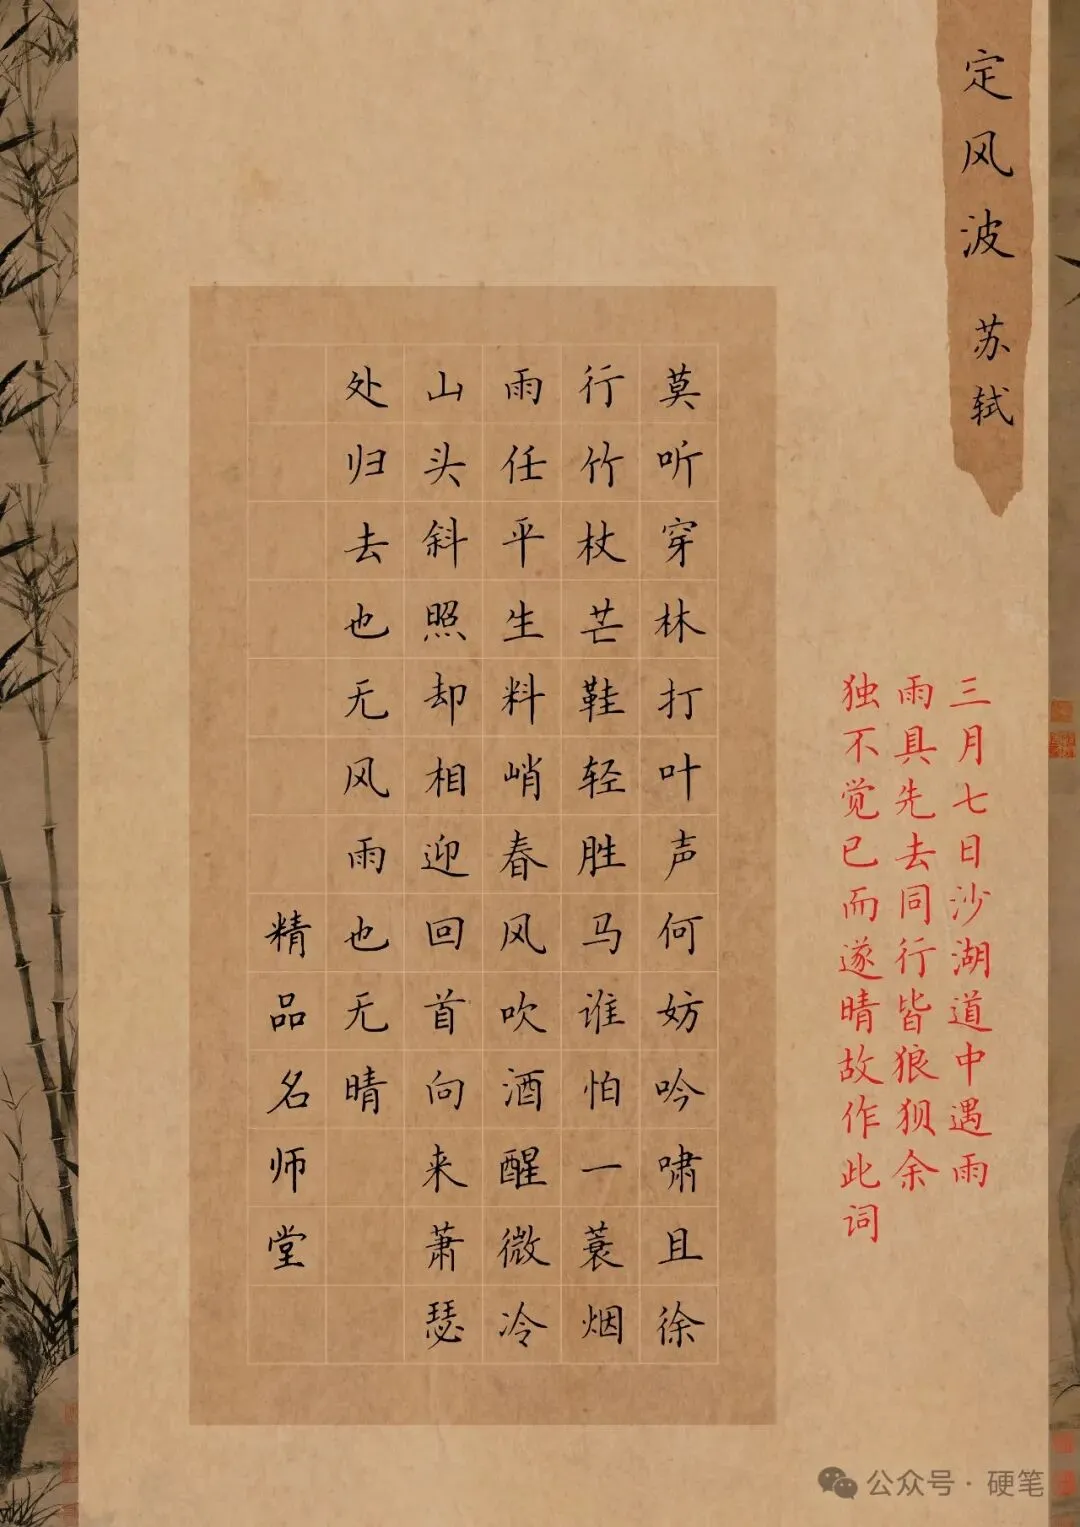 定风波 苏轼
三月七日沙湖道中遇雨
雨具先去同行皆狼狈余
独不觉已而遂晴故作此词
莫听穿林打叶声何妨吟啸且徐
行竹杖芒鞋轻胜马谁怕一蓑烟
雨任平生料峭春风吹酒醒微冷
山头斜照却相迎回首向来萧瑟
处归去也无风雨也无晴
精品名师堂
公众号·硬笔